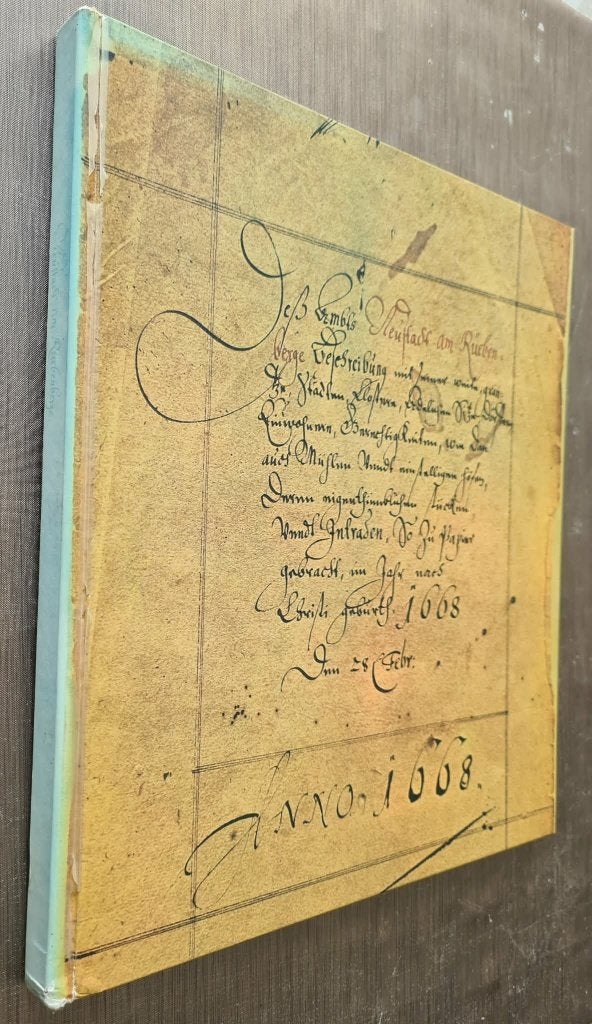 Deß Ambts Neustadt am Rüben-
berge Beschreibung mit seiner weite, gren-
tze, Städten, Clöstern, Adelichen Sitz, dörffern
Einwohnern, Gerechtigkeiten, wie den
auch Mühlen Vundt einstelligen höfen,
Deren eigenthümblichen stücken
Vundt Intraden, So Zu Papier
gebracht, im Jahr nach
Christi geburth. 1668
Den 28 Febr:
ANNO. 1668.